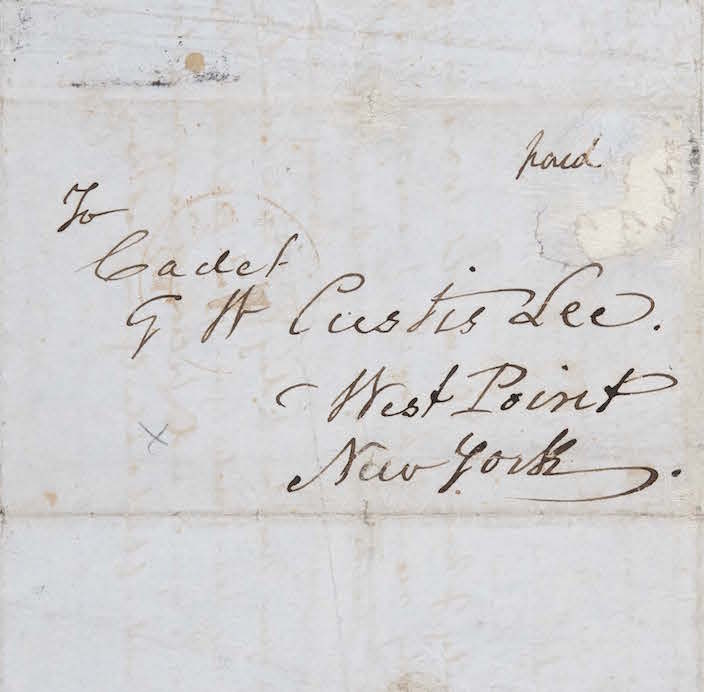 paid
To
Cadet
G W Custis Lee.
West Point
New York.